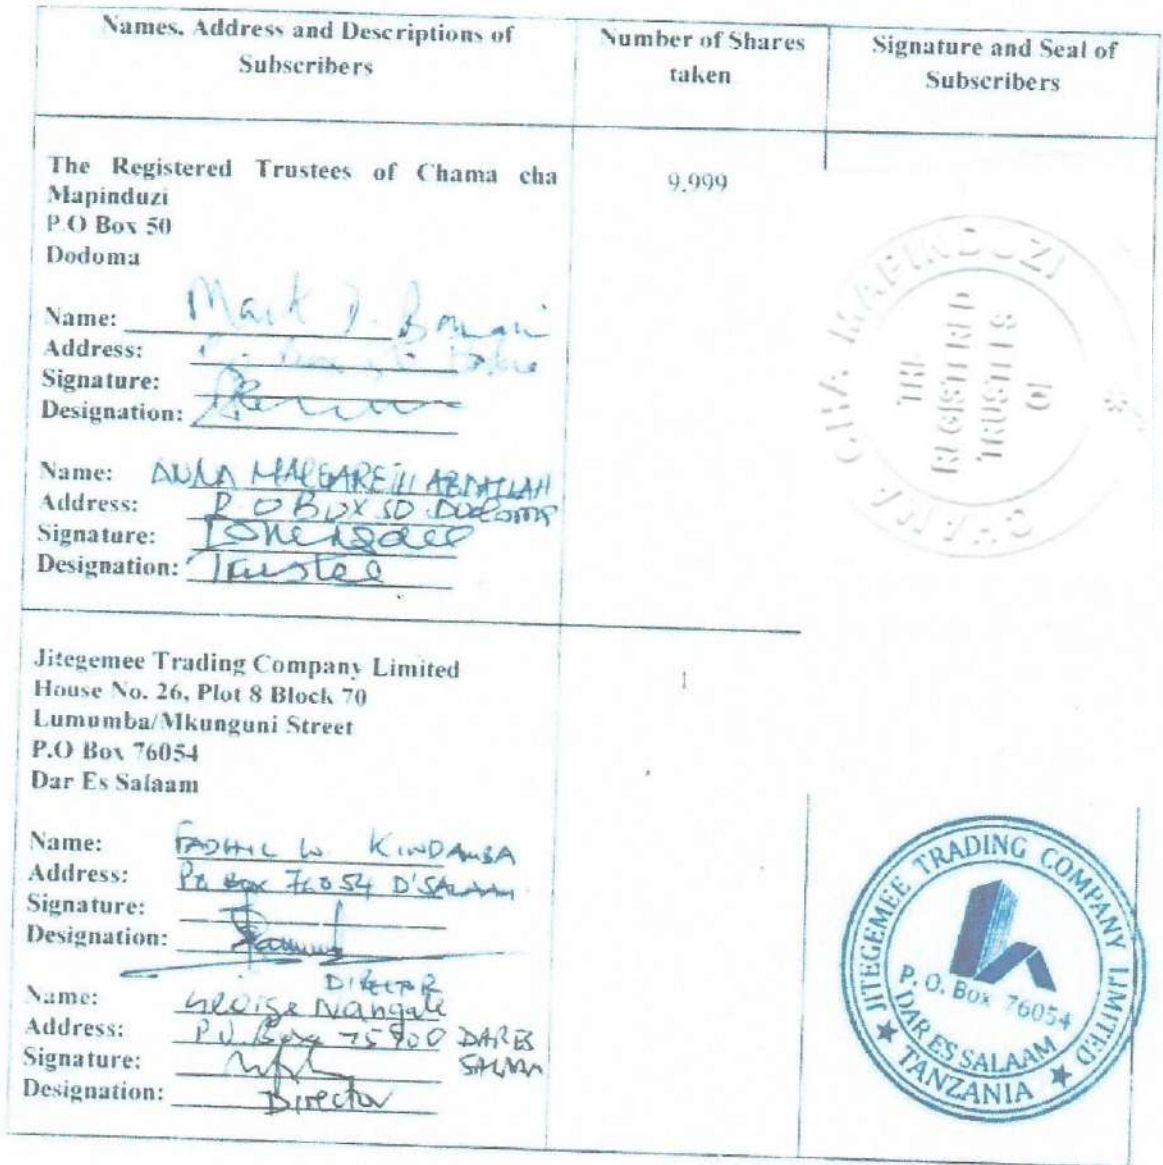 Names, Address and Descriptions of Subscribers
Number of Shares taken
Signature and Seal of Subscribers
The Registered Trustees of Chama cha
Mapinduzi
P.O Box 50
Dodoma
9,999
Name: Mark D. Bomani
Address:
Signature:
Designation:
Name: ANNA MARGARETH ABDALLAH
Address: P.O BOX 50 DODOMA
Signature:
Designation: Trustee
CHAMA CHA MAPINDUZI *
THE
REGISTERED
TRUSTEES
OF
Jitegemee Trading Company Limited
House No. 26, Plot 8 Block 70
Lumumba/Mkunguni Street
P.O Box 76054
Dar Es Salaam
1
Name: FADHIL W. KINDAMBA
Address: PO Box 76054 D'SALAAM
Signature:
Designation:
DIRECTOR
Name: George Nangale
Address: P.O. Box 75900 DAR ES
SALAAM
Signature:
Designation: Director
JITEGEMEE TRADING COMPANY LIMITED
P. O. Box 76054
DAR ES SALAAM
★ TANZANIA ★